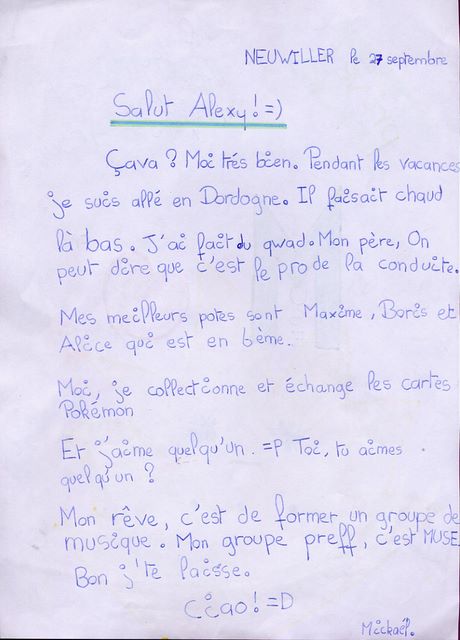 NEUWILLER le 27 septembre
Salut Alexy! =)
Çava ? Moi trés bien. Pendant les vacances
je suis allé en Dordogne. Il faisait chaud
là bas. J'ai fait du qwad. Mon père, On
peut dire que c'est le pro de la conduite.
Mes meilleurs potes sont Maxime, Boris et
Alice qui est en 6ème.
Moi, je collectionne et échange les cartes
Pokémon
Et j'aime quelqu'un. =P Toi, tu aimes
quelqu'un ?
Mon rêve, c'est de former un groupe de
musique. Mon groupe preff, c'est MUSE
Bon j'te laisse.
Ciao! =D
Mickaël.